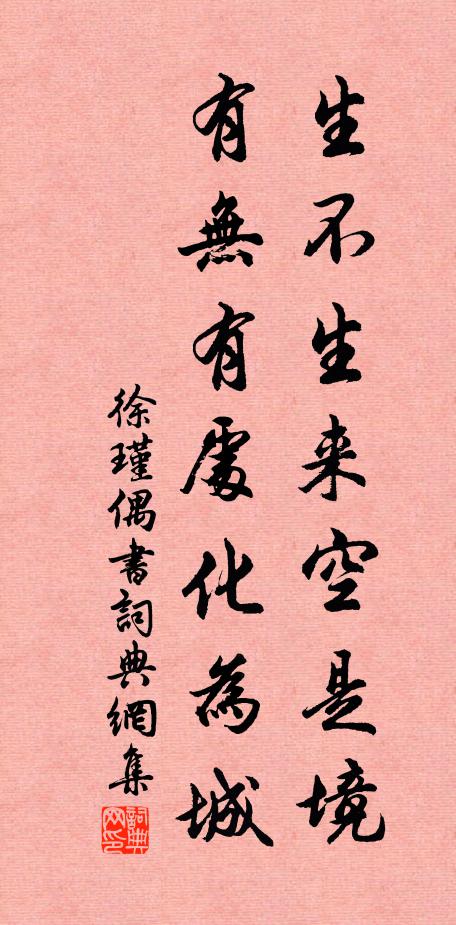 生不生来空是境
有無有處化為城
徐瑾偶書詞典網集
詞典网印